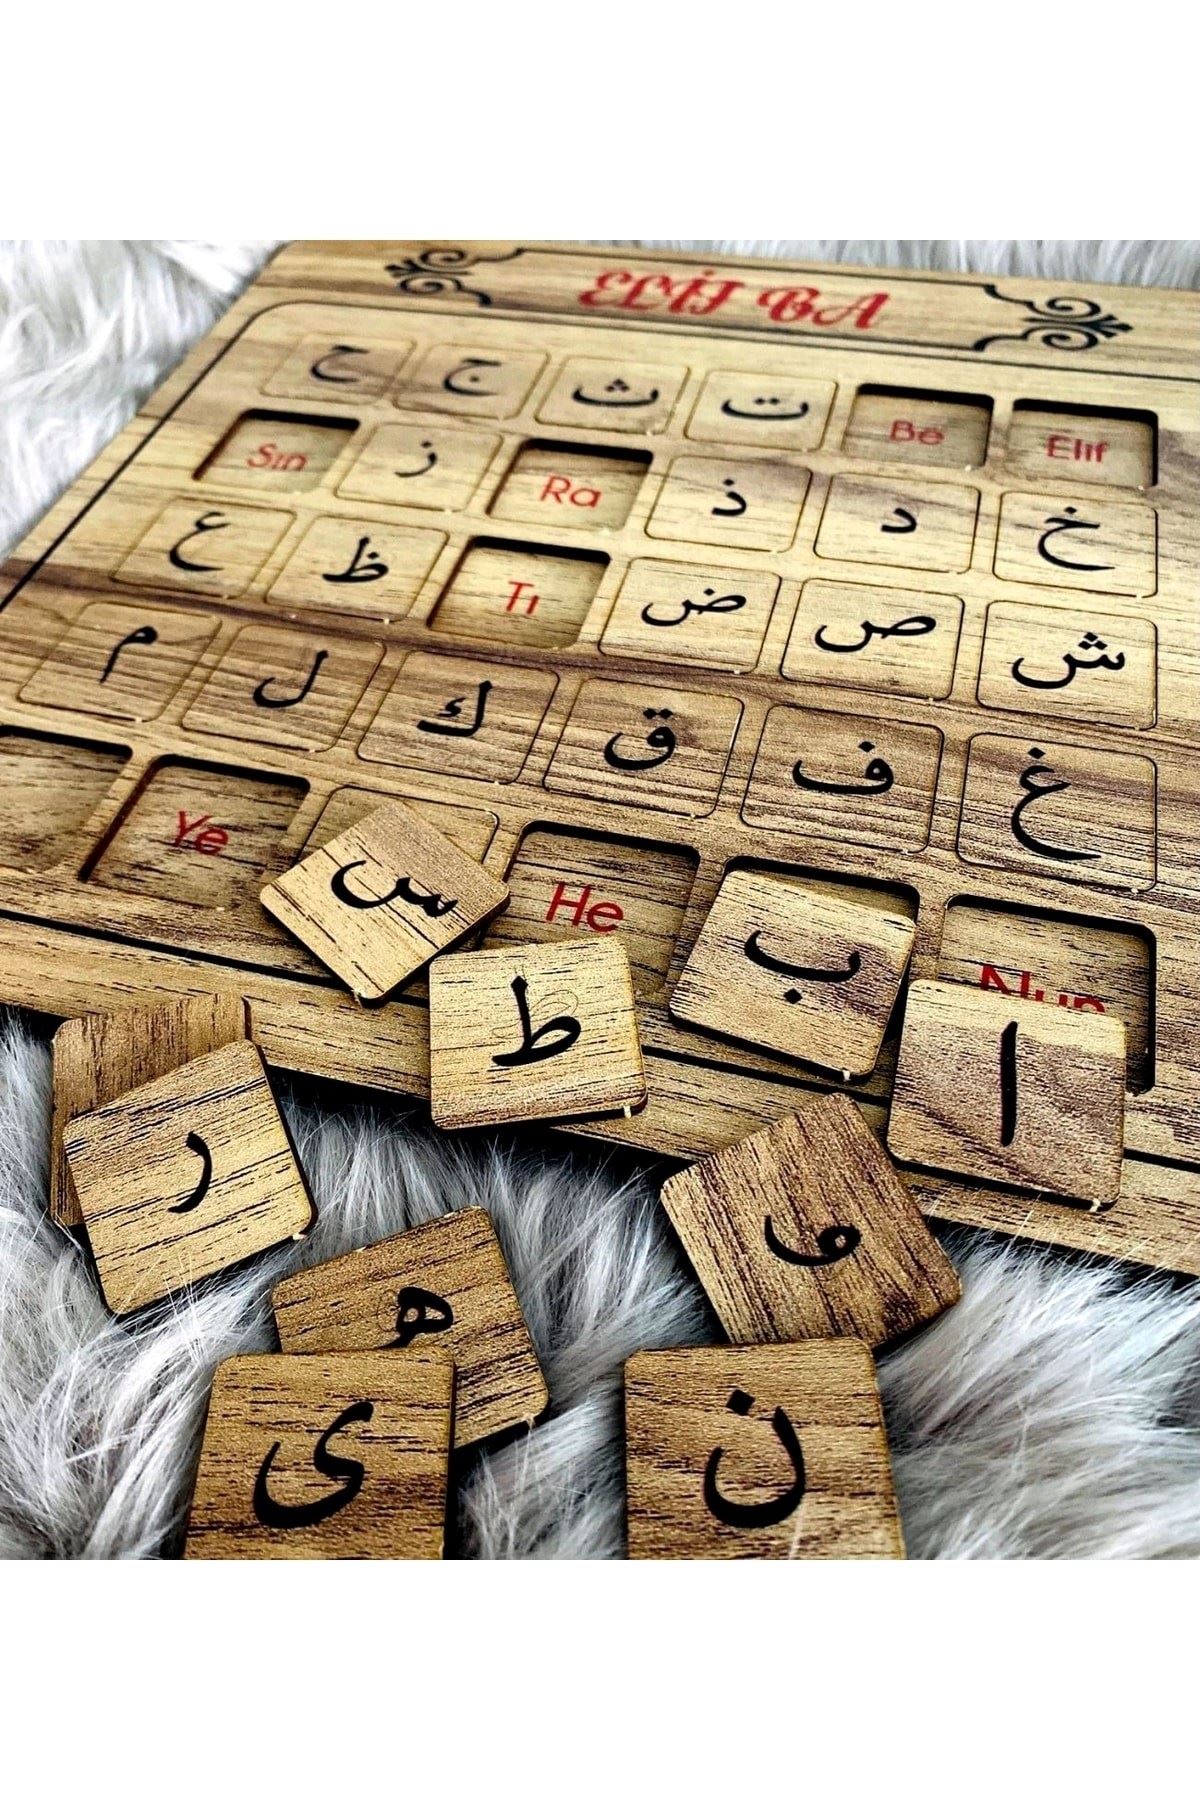 ELİF BA
Elif Be ت ث ج ح
خ د ذ Ra ز Sın
ش ص ض Tı ظ ع
غ ف ق ك ل م
Nun He Ye
س
ب
ط
ا
ر
و
ه
ى
ن